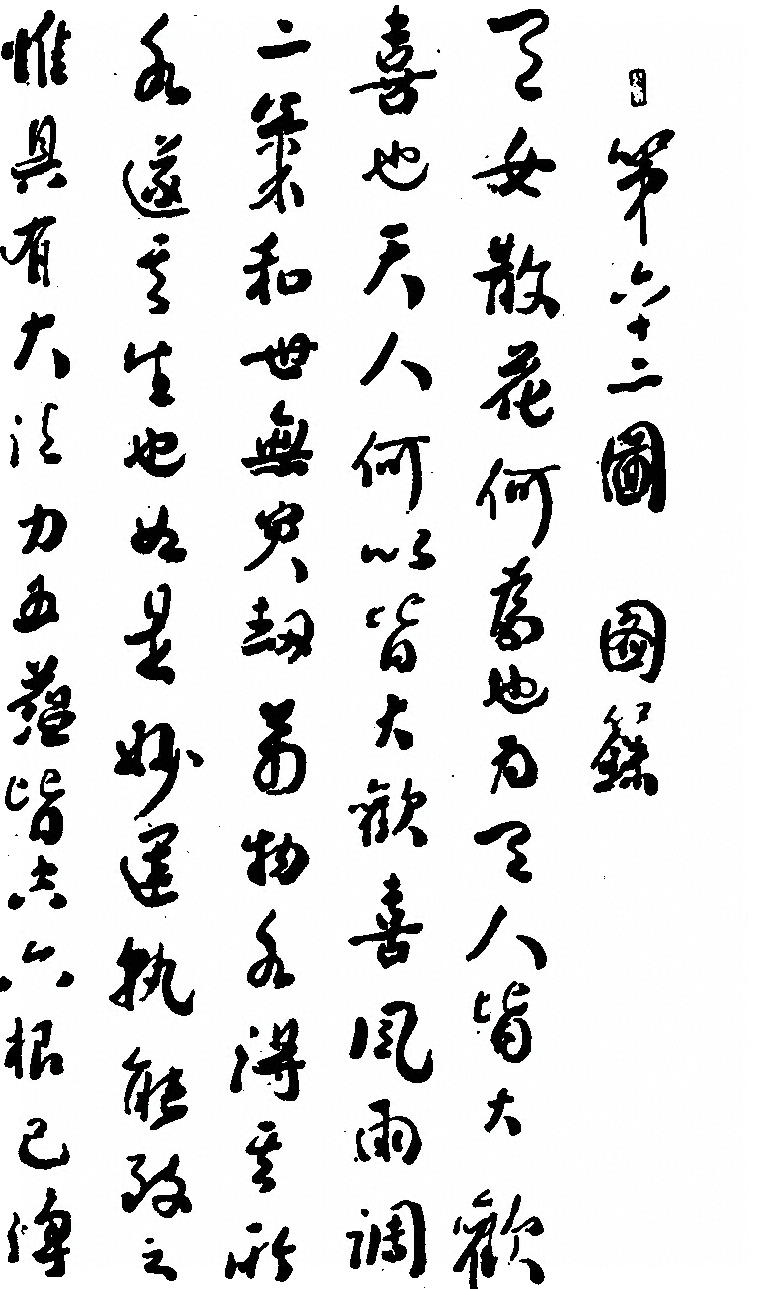 第六十二圖 圖籙
天女散花何為也为天人皆大歡
喜也天人何以皆大歡喜風雨調
二氣和世無灾劫萬物各得其所
各遂其生也如是妙運孰能致之
惟具有大法力五蘊皆六根已